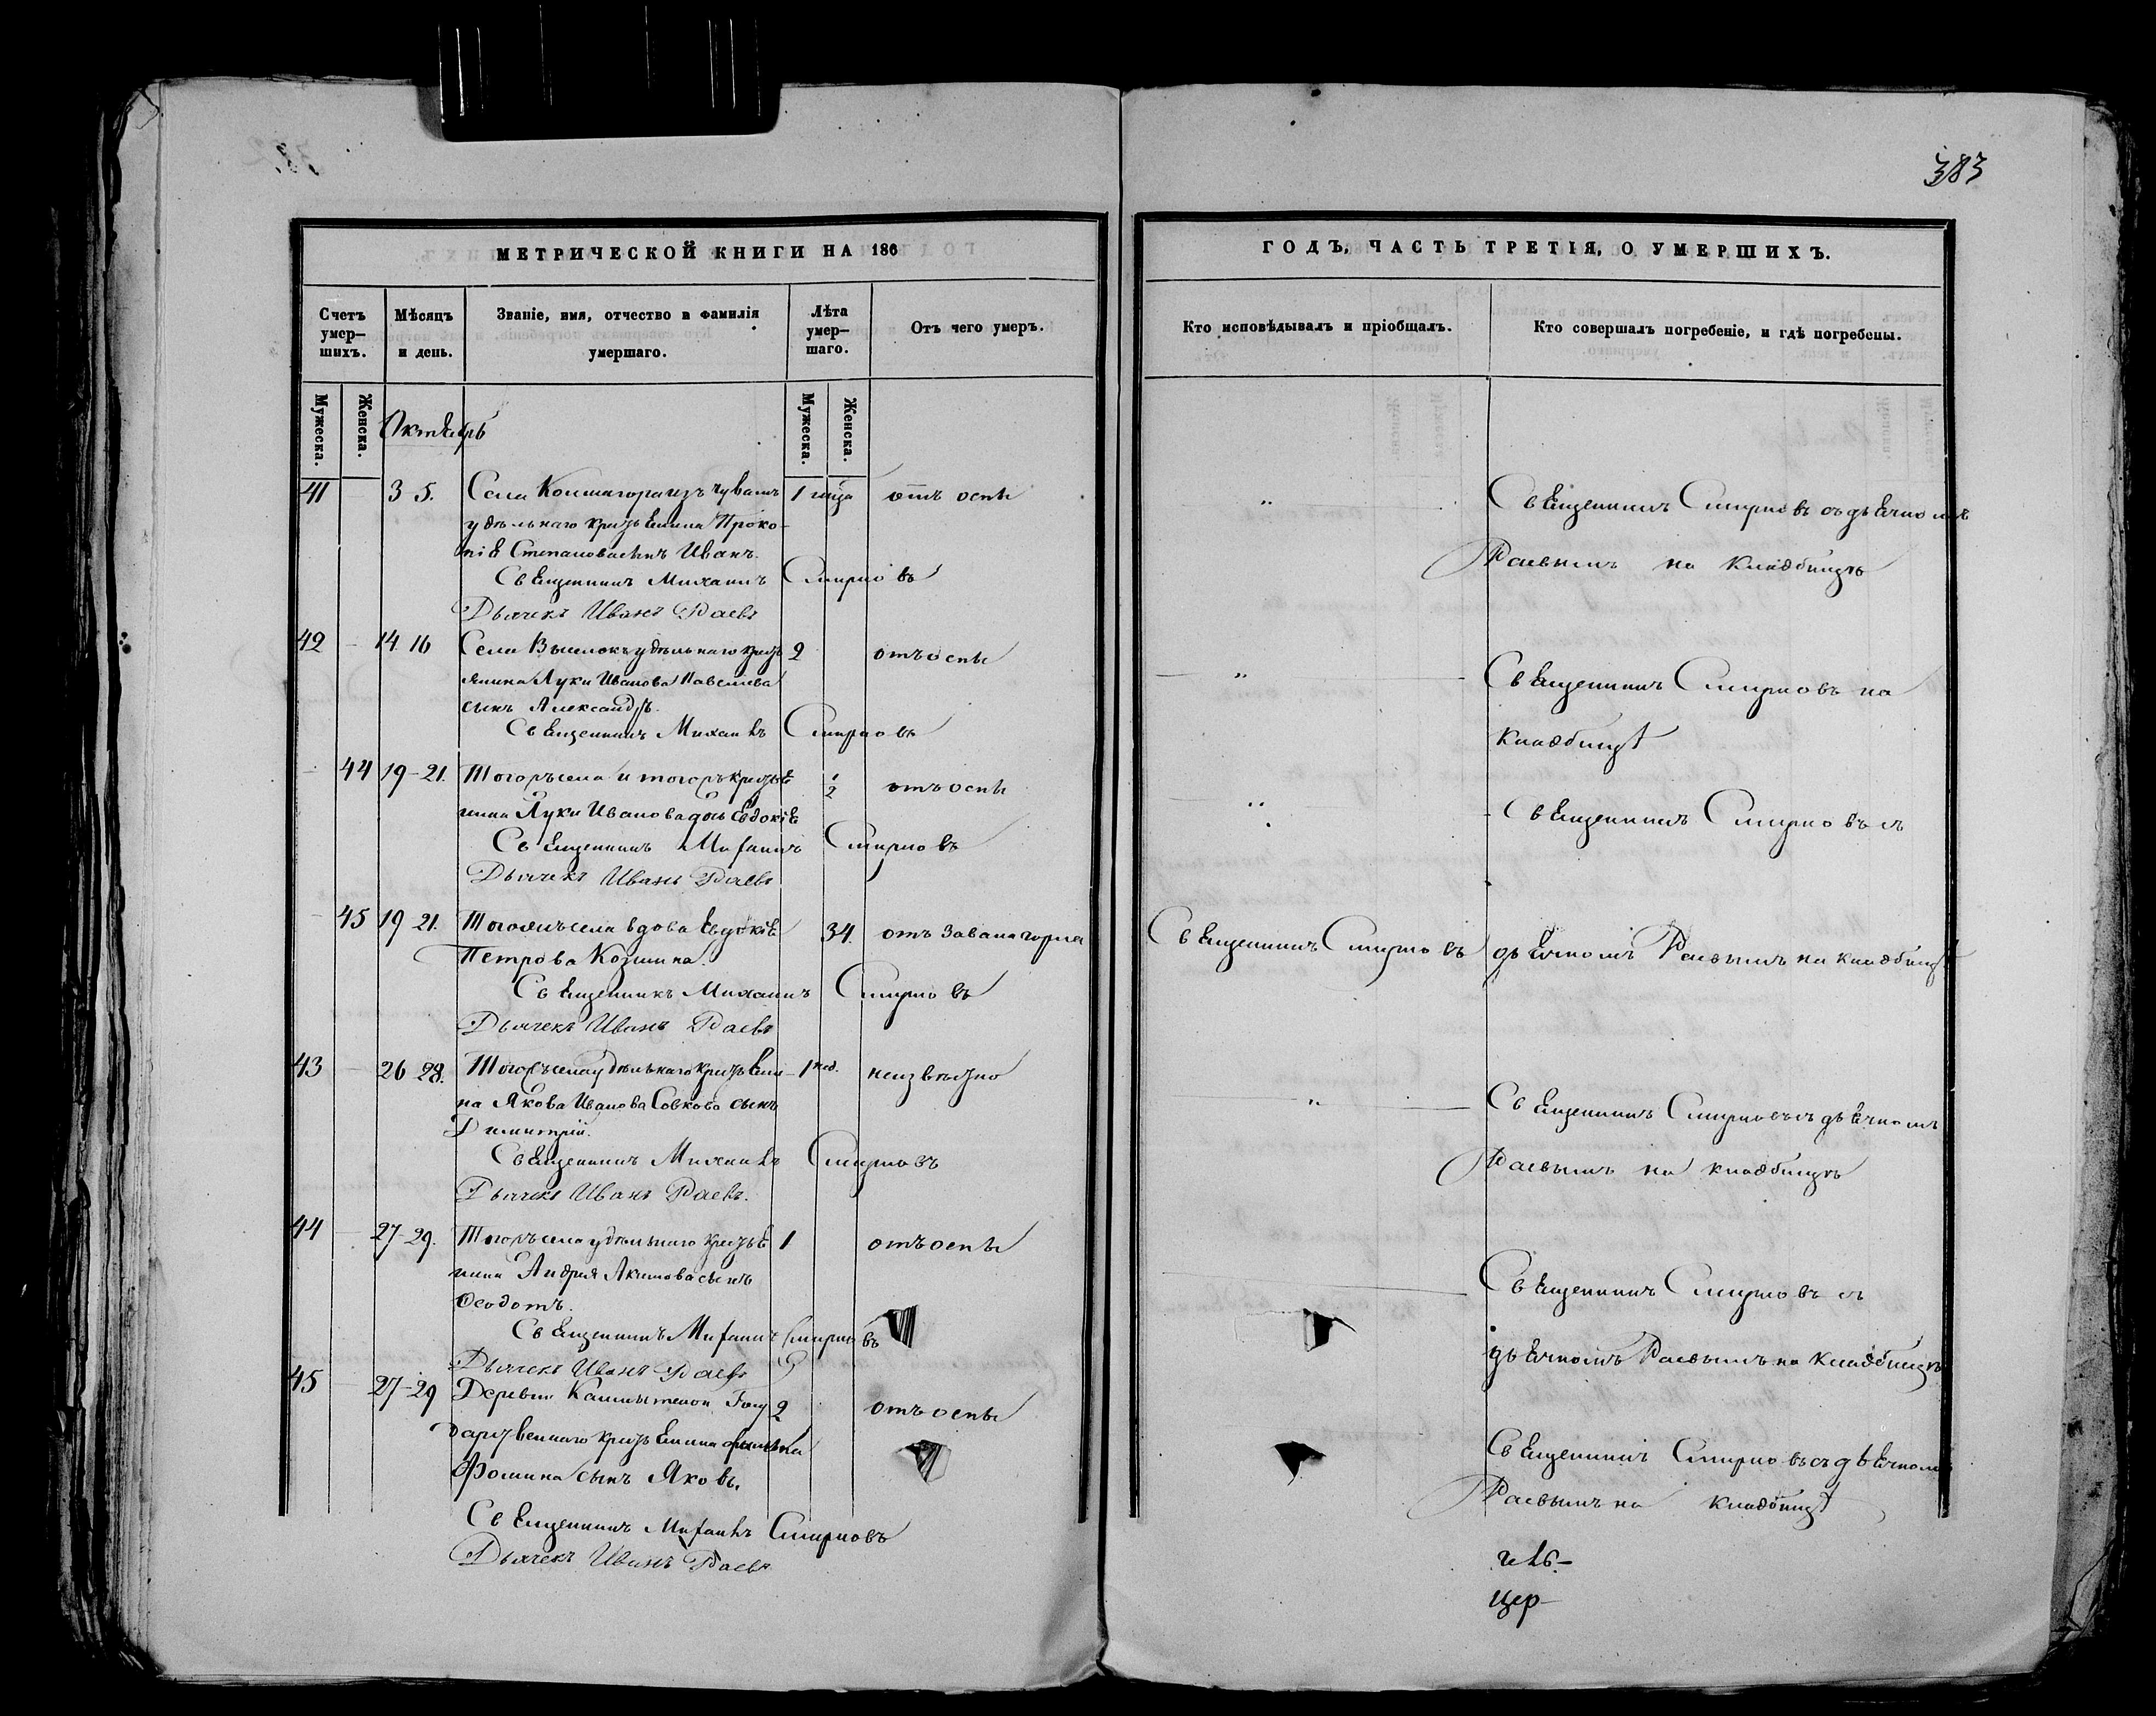 383
МЕТРИЧЕСКОЙ КНИГИ НА 186
Счетъ умер-шихъ.
Мѣсяцъ и день.
Званіе, имя, отчество и фамилія умершаго.
Лѣта умер-шаго.
Отъ чего умеръ.
Мужеска.
Женска.
Мужеска.
Женска.
Октябрь
41 3 5. Села изъ чувашъ 1 года отъ оспы
удѣльнаго крестьянина Проко-
пія Степанова сынъ Иванъ.
Священникъ Михаилъ Смирновъ
Дьячекъ Иванъ Раевъ
42 14 16 Села удѣльнаго кресть 2 отъ оспы
янина Луки Иванова
сынъ Александръ.
Священникъ Михаилъ Смирновъ
44 19-21. Тогожъ села и тогожъ крестья 1/2 отъ оспы
нина Луки Иванова дочь Евдокія
Священникъ Михаилъ Смирновъ
Дьячекъ Иванъ Раевъ
45 19 21. Тогожъ села вдова Евдокія 34. отъ завала горла
Петрова Козмина.
Священникъ Михаилъ Смирновъ
Дьячекъ Иванъ Раевъ
43 26 28. Тогожъ села удѣльнаго крестьяни- 1 нед. неизвѣстно
на Якова Иванова сынъ
Димитрій.
Священникъ Михаилъ Смирновъ
Дьячекъ Иванъ Раевъ.
44 27-29. Тогожъ села удѣльнаго крестья 1 отъ оспы
нина Андрея Акимова сынъ
Ѳеодотъ.
Священникъ Михаилъ Смирновъ
Дьячекъ Иванъ Раевъ
45 27-29 Деревни Госу 2 отъ оспы
дарственнаго крестьянина
Фомина сынъ Яковъ.
Священникъ Михаилъ Смирновъ
Дьячекъ Иванъ Раевъ
ГОДЪ, ЧАСТЬ ТРЕТІЯ, О УМЕРШИХЪ.
Кто исповѣдывалъ и пріобщалъ.
Кто совершалъ погребеніе, и гдѣ погребены.
" Священникъ Смирновъ съ дьячкомъ
Раевымъ на кладбищѣ
" Священникъ Смирновъ на
кладбищѣ
" Священникъ Смирновъ съ
Священникъ Смирновъ дьячкомъ Раевымъ на кладбищѣ
" Священникъ Смирновъ съ дьячкомъ
Раевымъ на кладбищѣ
Священникъ Смирновъ съ
дьячкомъ Раевымъ на кладбищѣ
Священникъ Смирновъ съ дьячкомъ
Раевымъ на кладбищѣ
цер-